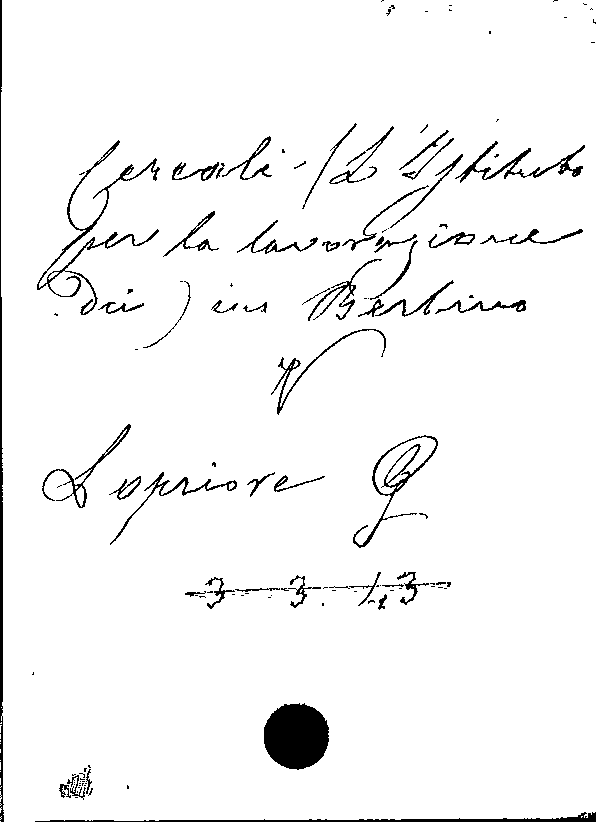 Cereali - (L'Istituto
per la lavorazione
dei) in Berlino
V
Lopriore G
3 3. 43